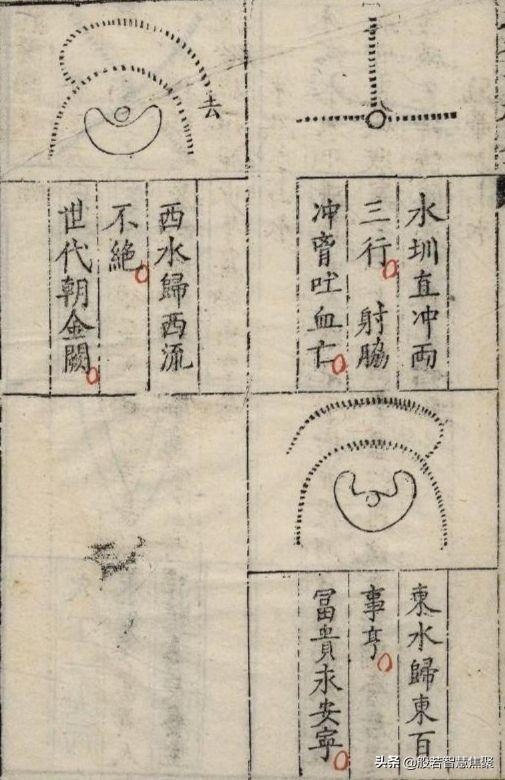 水圳直冲両
三行 射脇
冲胷吐血亡
去
西水歸西流
不絶
世代朝金闕
東水歸東百
事亨
冨貴永安寧
头条 @般若智慧焦聚